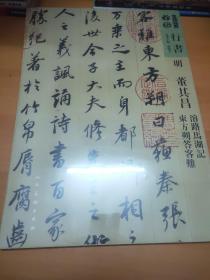 行書
明
董其昌
濬路馬湖記
東方朔答客難
客難東方朔曰蘇秦張
萬乘之主而身都卿相之
後世今子大夫修先王之術
人之義諷誦詩書百家
勝紀著於竹帛脣腐齒